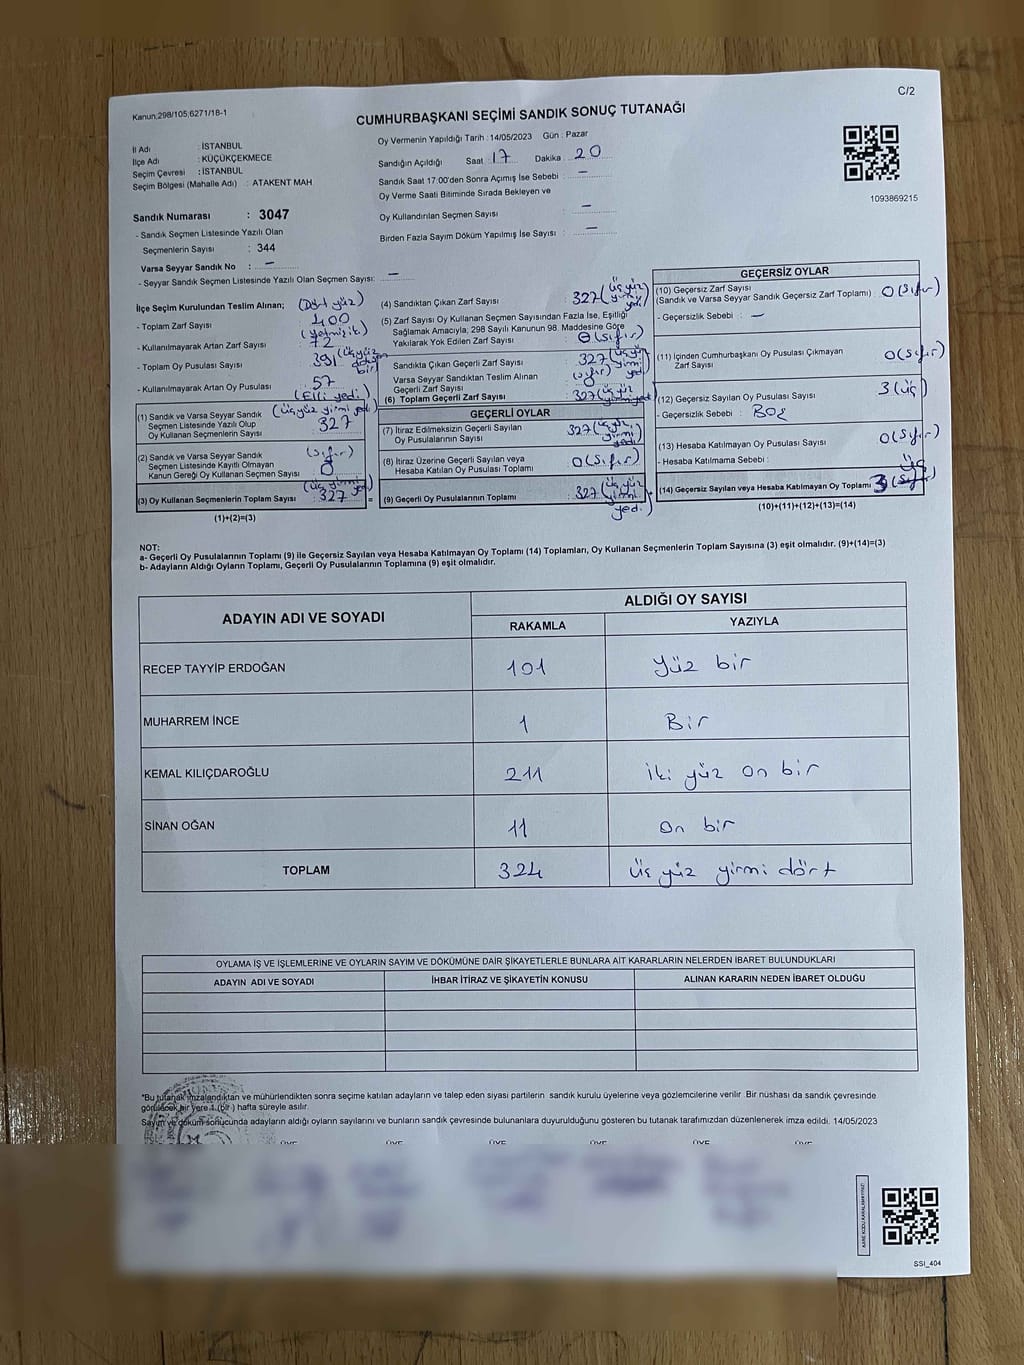 Kanun,298/105;6271/18-1
C/2
CUMHURBAŞKANI SEÇİMİ SANDIK SONUÇ TUTANAĞI
İl Adı : İSTANBUL
İlçe Adı : KÜÇÜKÇEKMECE
Seçim Çevresi : İSTANBUL
Seçim Bölgesi (Mahalle Adı) : ATAKENT MAH
Sandık Numarası : 3047
- Sandık Seçmen Listesinde Yazılı Olan
Seçmenlerin Sayısı : 344
Varsa Seyyar Sandık No : –
- Seyyar Sandık Seçmen Listesinde Yazılı Olan Seçmen Sayısı: –
Oy Vermenin Yapıldığı Tarih : 14/05/2023 Gün : Pazar
Sandığın Açıldığı Saat 17 Dakika 20
Sandık Saat 17:00'den Sonra Açımış İse Sebebi : –
Oy Verme Saati Bitiminde Sırada Bekleyen ve
Oy Kullandırılan Seçmen Sayısı –
Birden Fazla Sayım Döküm Yapılmış İse Sayısı : –
1093869215
İlçe Seçim Kurulundan Teslim Alınan; (Dört yüz)
- Toplam Zarf Sayısı 400
(yetmiş iki)
- Kullanılmayarak Artan Zarf Sayısı : 72
- Toplam Oy Pusulası Sayısı 391 (üç yüz doksan bir)
- Kullanılmayarak Artan Oy Pusulası 57
(Elli yedi)
(1) Sandık ve Varsa Seyyar Sandık (üç yüz yirmi yedi)
Seçmen Listesinde Yazılı Olup : 327
Oy Kullanan Seçmenlerin Sayısı
(2) Sandık ve Varsa Seyyar Sandık (sıfır)
Seçmen Listesinde Kayıtlı Olmayan
Kanun Gereği Oy Kullanan Seçmen Sayısı : 0
(üç yüz yirmi yedi)
(3) Oy Kullanan Seçmenlerin Toplam Sayısı : 327 =
(1)+(2)=(3)
(4) Sandıktan Çıkan Zarf Sayısı : 327 (üç yüz yirmi yedi)
(5) Zarf Sayısı Oy Kullanan Seçmen Sayısından Fazla İse, Eşitliği
Sağlamak Amacıyla, 298 Sayılı Kanunun 98. Maddesine Göre
Yakılarak Yok Edilen Zarf Sayısı : 0 (Sıfır)
Sandıkta Çıkan Geçerli Zarf Sayısı : 327 (üç yüz yirmi yedi)
Varsa Seyyar Sandıktan Teslim Alınan
Geçerli Zarf Sayısı : 0 (sıfır)
(6) Toplam Geçerli Zarf Sayısı : 327 (üç yüz yirmi yedi)
GEÇERLİ OYLAR
(7) İtiraz Edilmeksizin Geçerli Sayılan
Oy Pusulalarının Sayısı : 327 (üç yüz yirmi yedi)
(8) İtiraz Üzerine Geçerli Sayılan veya
Hesaba Katılan Oy Pusulası Toplamı : 0 (Sıfır)
(9) Geçerli Oy Pusulalarının Toplamı : 327 (üç yüz yirmi yedi)
GEÇERSİZ OYLAR
(10) Geçersiz Zarf Sayısı
(Sandık ve Varsa Seyyar Sandık Geçersiz Zarf Toplamı) : 0 (Sıfır)
- Geçersizlik Sebebi : –
(11) İçinden Cumhurbaşkanı Oy Pusulası Çıkmayan
Zarf Sayısı 0 (Sıfır)
(12) Geçersiz Sayılan Oy Pusulası Sayısı 3 (üç)
- Geçersizlik Sebebi : BOŞ
(13) Hesaba Katılmayan Oy Pusulası Sayısı 0 (Sıfır)
- Hesaba Katılmama Sebebi :
(14) Geçersiz Sayılan veya Hesaba Katılmayan Oy Toplamı 3 (Sıfır) üç
(10)+(11)+(12)+(13)=(14)
NOT:
a- Geçerli Oy Pusulalarının Toplamı (9) ile Geçersiz Sayılan veya Hesaba Katılmayan Oy Toplamı (14) Toplamları, Oy Kullanan Seçmenlerin Toplam Sayısına (3) eşit olmalıdır. (9)+(14)=(3)
b- Adayların Aldığı Oyların Toplamı, Geçerli Oy Pusulalarının Toplamına (9) eşit olmalıdır.
ADAYIN ADI VE SOYADI ALDIĞI OY SAYISI
RAKAMLA YAZIYLA
RECEP TAYYİP ERDOĞAN 101 Yüz bir
MUHARREM İNCE 1 Bir
KEMAL KILIÇDAROĞLU 211 iki yüz on bir
SİNAN OĞAN 11 On bir
TOPLAM 324 üç yüz yirmi dört
OYLAMA İŞ VE İŞLEMLERİNE VE OYLARIN SAYIM VE DÖKÜMÜNE DAİR ŞİKAYETLERLE BUNLARA AİT KARARLARIN NELERDEN İBARET BULUNDUKLARI
ADAYIN ADI VE SOYADI İHBAR İTİRAZ VE ŞİKAYETİN KONUSU ALINAN KARARIN NEDEN İBARET OLDUĞU
*Bu tutanak imzalandıktan ve mühürlendikten sonra seçime katılan adayların ve talep eden siyasi partilerin sandık kurulu üyelerine veya gözlemcilerine verilir. Bir nüshası da sandık çevresinde
görülecek bir yere 1 (bir) hafta süreyle asılır.
Sayım ve döküm sonucunda adayların aldığı oyların sayılarını ve bunların sandık çevresinde bulunanlara duyurulduğunu gösteren bu tutanak tarafımızdan düzenlenerek imza edildi. 14/05/2023
SSI_404